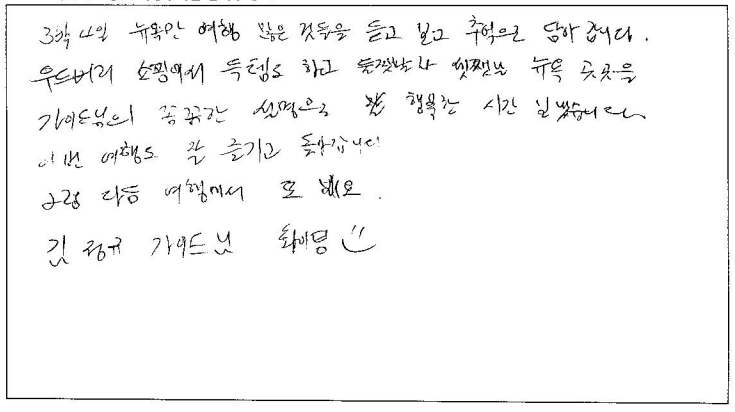 3박 4일 뉴욕만 여행 많은 것들을 듣고 보고 추억으로 담아 갑니다.
우드버리 쇼핑에서 득템도 하고 둘쨋날과 셋쨋날 뉴욕 곳곳을
가이드님의 꼼꼼한 설명으로 행복한 시간 보냈습니다
이번 여행도 잘 즐기고 돌아갑니다
그럼 다음 여행에서 또 봬요.
김 정규 가이드님 화이팅